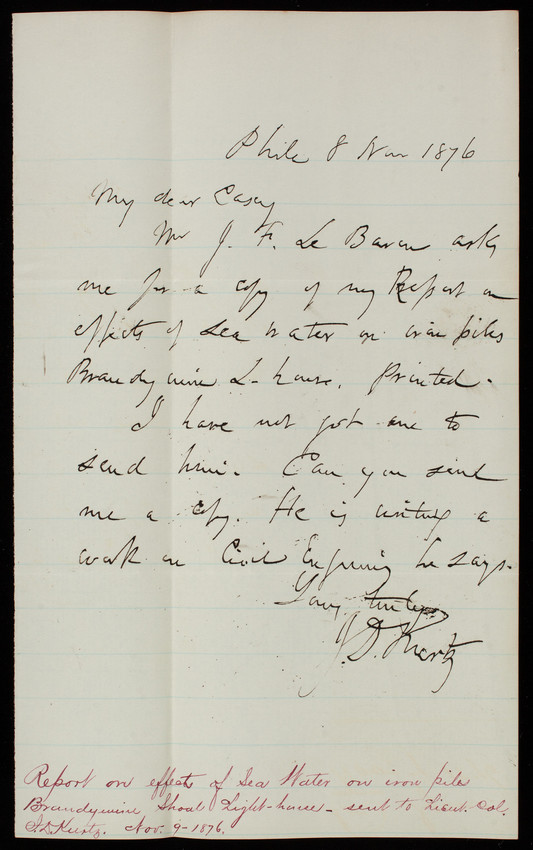 Phila 8 Nov 1876
My dear Casey
Mr J. F. Le Baron asks
me for a copy of my Report on
effects of sea water on iron piles
Brandywine L-house. Printed.
I have not got one to
send him. Can you send
me a copy. He is writing a
work on Civil Engineering he says.
Yours truly
J. D. Kurtz
Report on effects of Sea Water on iron piles
Brandywine Shoal Light-house - sent to Lieut. Col.
J. D. Kurtz. Nov. 9-1876.